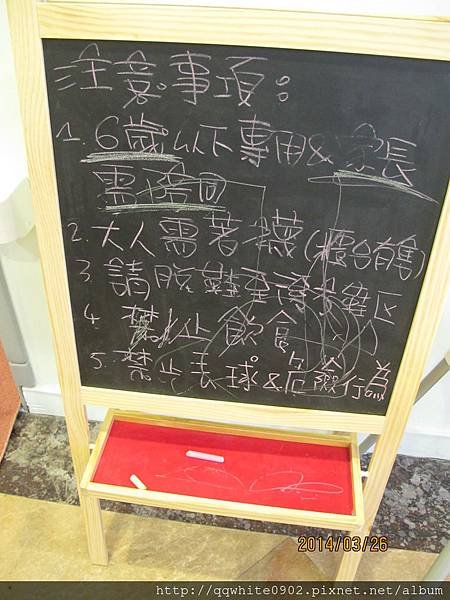 注意事項:
1. 6歲以下專用&家長
需陪同
2. 大人需著襪(櫃台有售)
3. 請脫鞋至區
4. 禁止飲食
5. 禁止丟球&危險行為
2014/03/26
http://qqwhite0902.pixnet.net/album